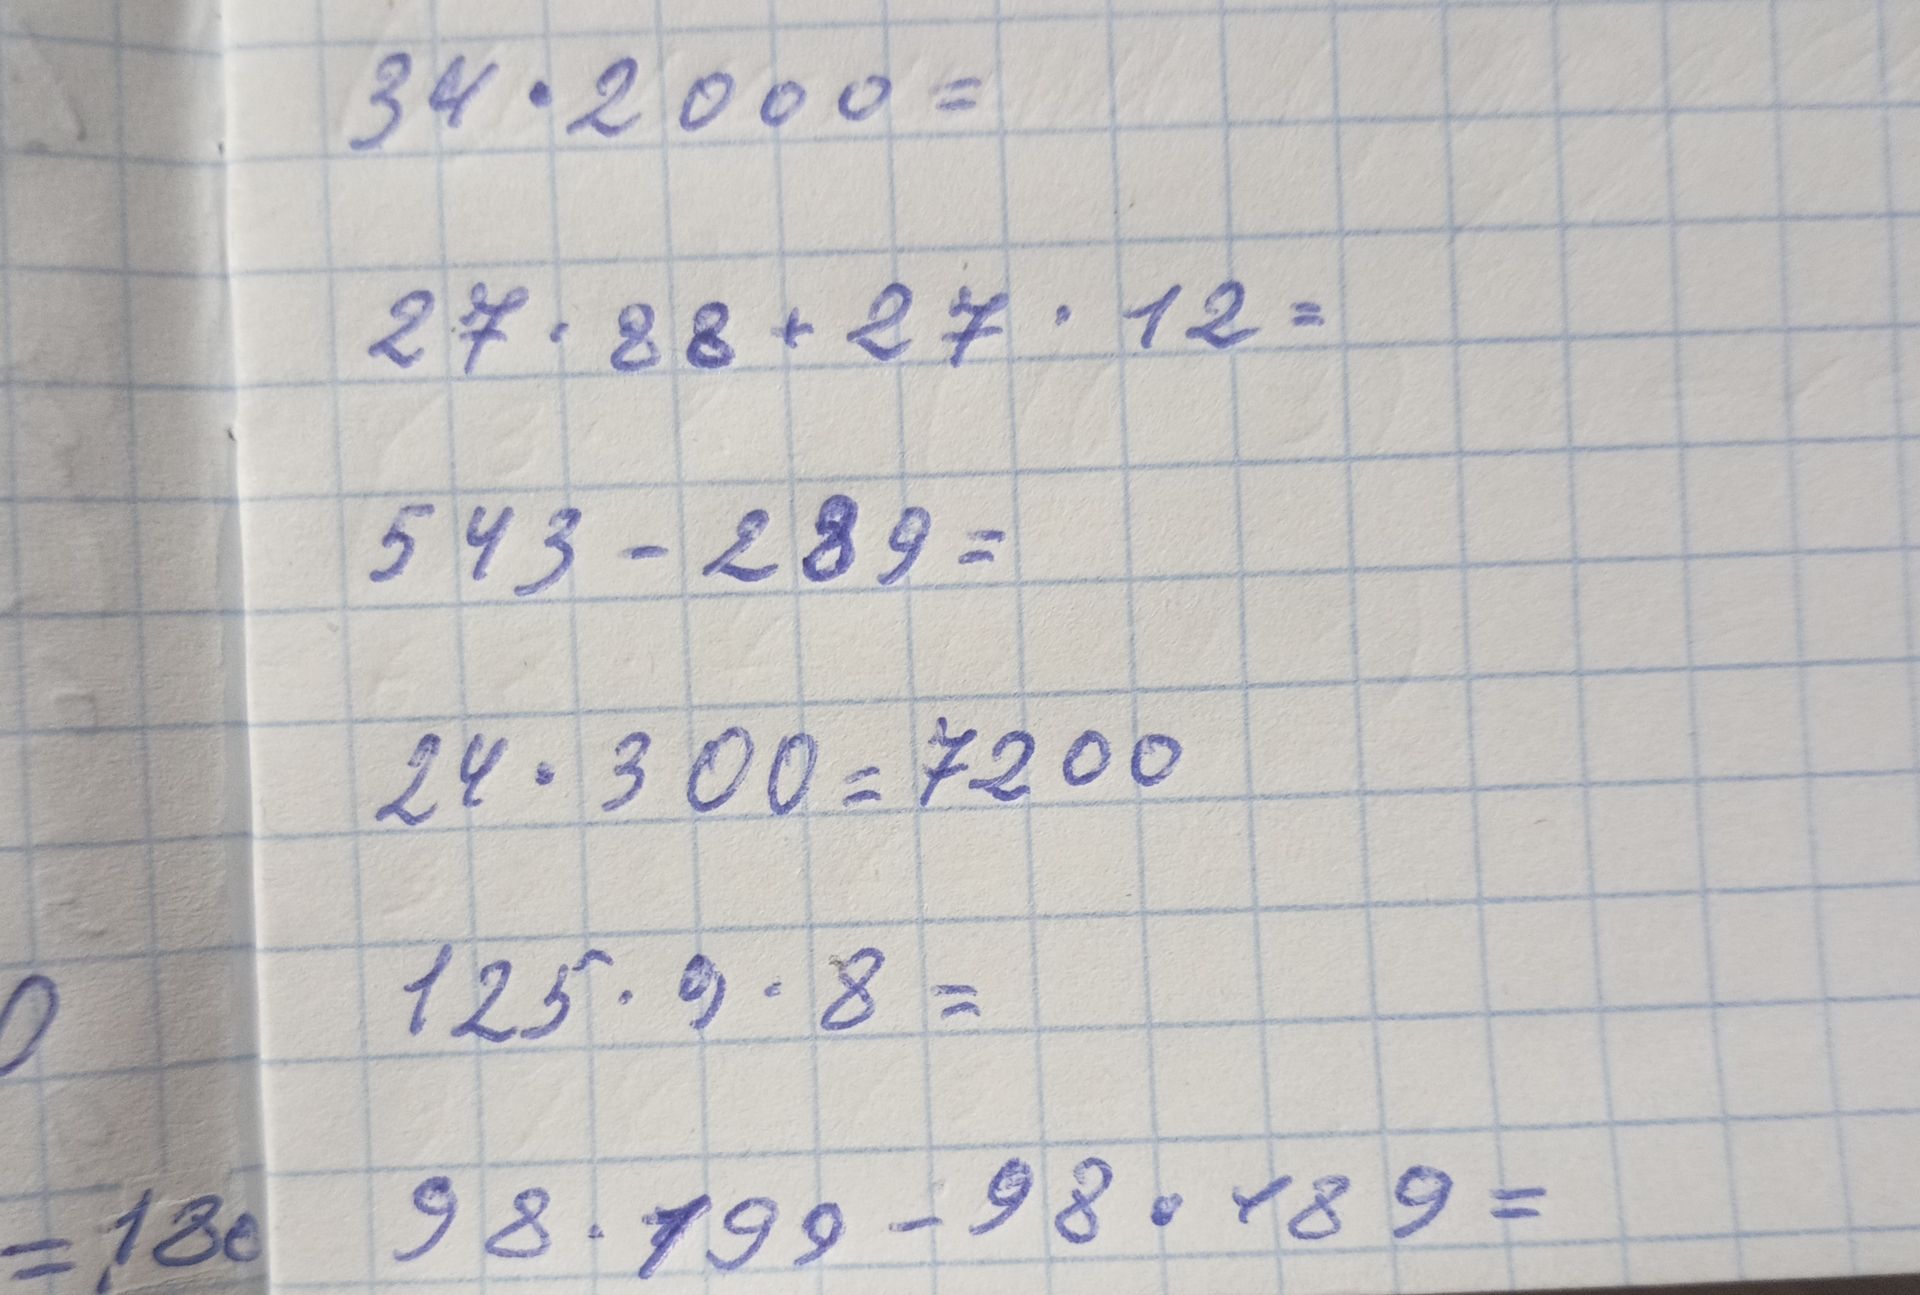 34 · 2000 =
27 · 88 + 27 · 12 =
543 - 289 =
24 · 300 = 7200
125 · 9 · 8 =
0
98 · 199 - 98 · 189 =
= 180